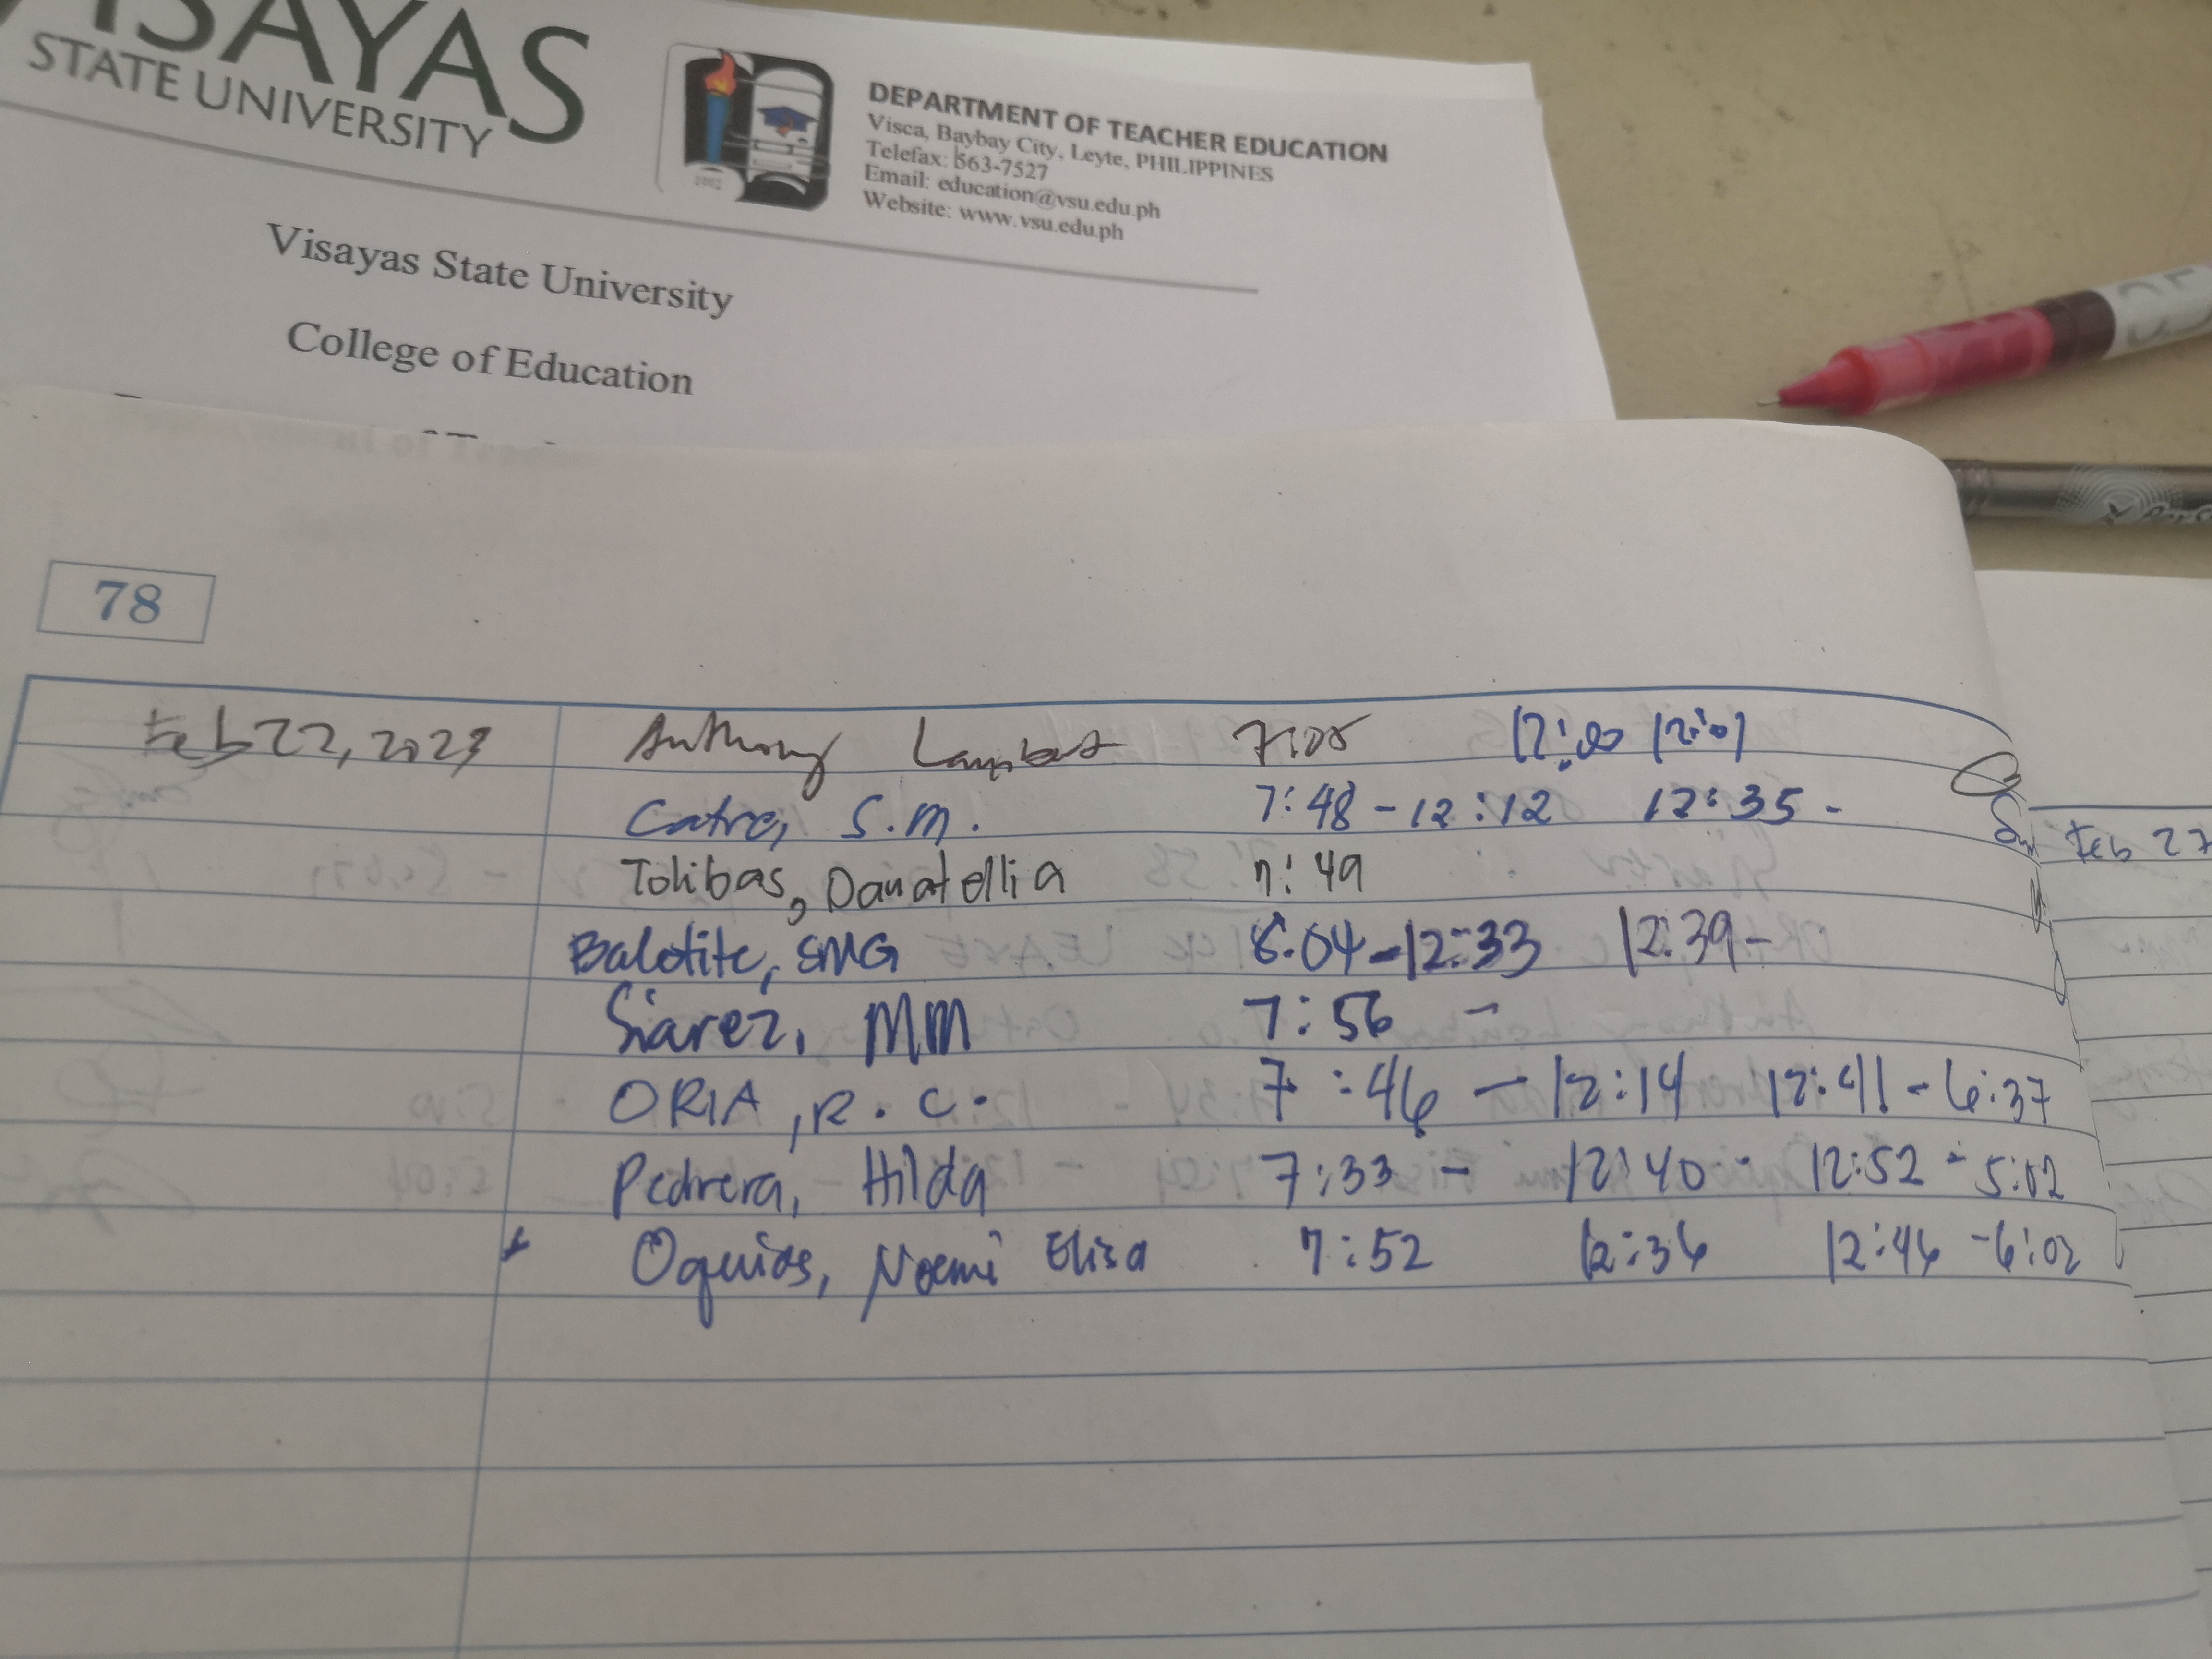 VISAYAS
STATE UNIVERSITY
DEPARTMENT OF TEACHER EDUCATION
Visca, Baybay City, Leyte, PHILIPPINES
Telefax: 563-7527
Email: education@vsu.edu.ph
Website: www.vsu.edu.ph
2002
Visayas State University
College of Education
78
Feb 22, 2023 Anthony 12:00 12:01
Catre, S.M. 7:48 - 12:12 12:35 -
Tolibas, Danatellia 7:49
Balotite, SMG 8:04 - 12:33 12:39 -
Siarez, MM 7:56 -
ORIA, R.C. 7:46 - 12:14 12:41 - 6:37
Pedrera, Hilda 7:33 - 12:40 - 12:52 - 5:02
Oquias, Noemi Elisa 7:52 12:36 12:46 - 6:02
Feb 27